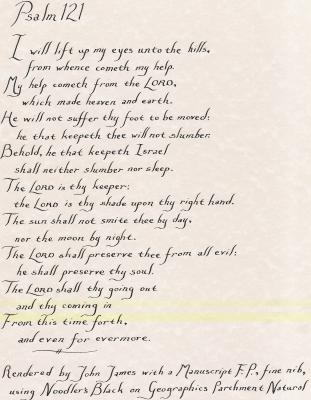 Psalm 121
I will lift up my eyes unto the hills,
from whence cometh my help.
My help cometh from the LORD,
which made heaven and earth.
He will not suffer thy foot to be moved:
he that keepeth thee will not slumber.
Behold, he that keepeth Israel
shall neither slumber nor sleep.
The LORD is thy keeper:
the LORD is thy shade upon thy right hand.
The sun shall not smite thee by day,
nor the moon by night.
The LORD shall preserve thee from all evil:
he shall preserve thy soul.
The LORD shall thy going out
and thy coming in
From this time forth,
and even for evermore.
Rendered by John James with a Manuscript F.P., fine nib,
using Noodler's Black on Geographics Parchment Natural